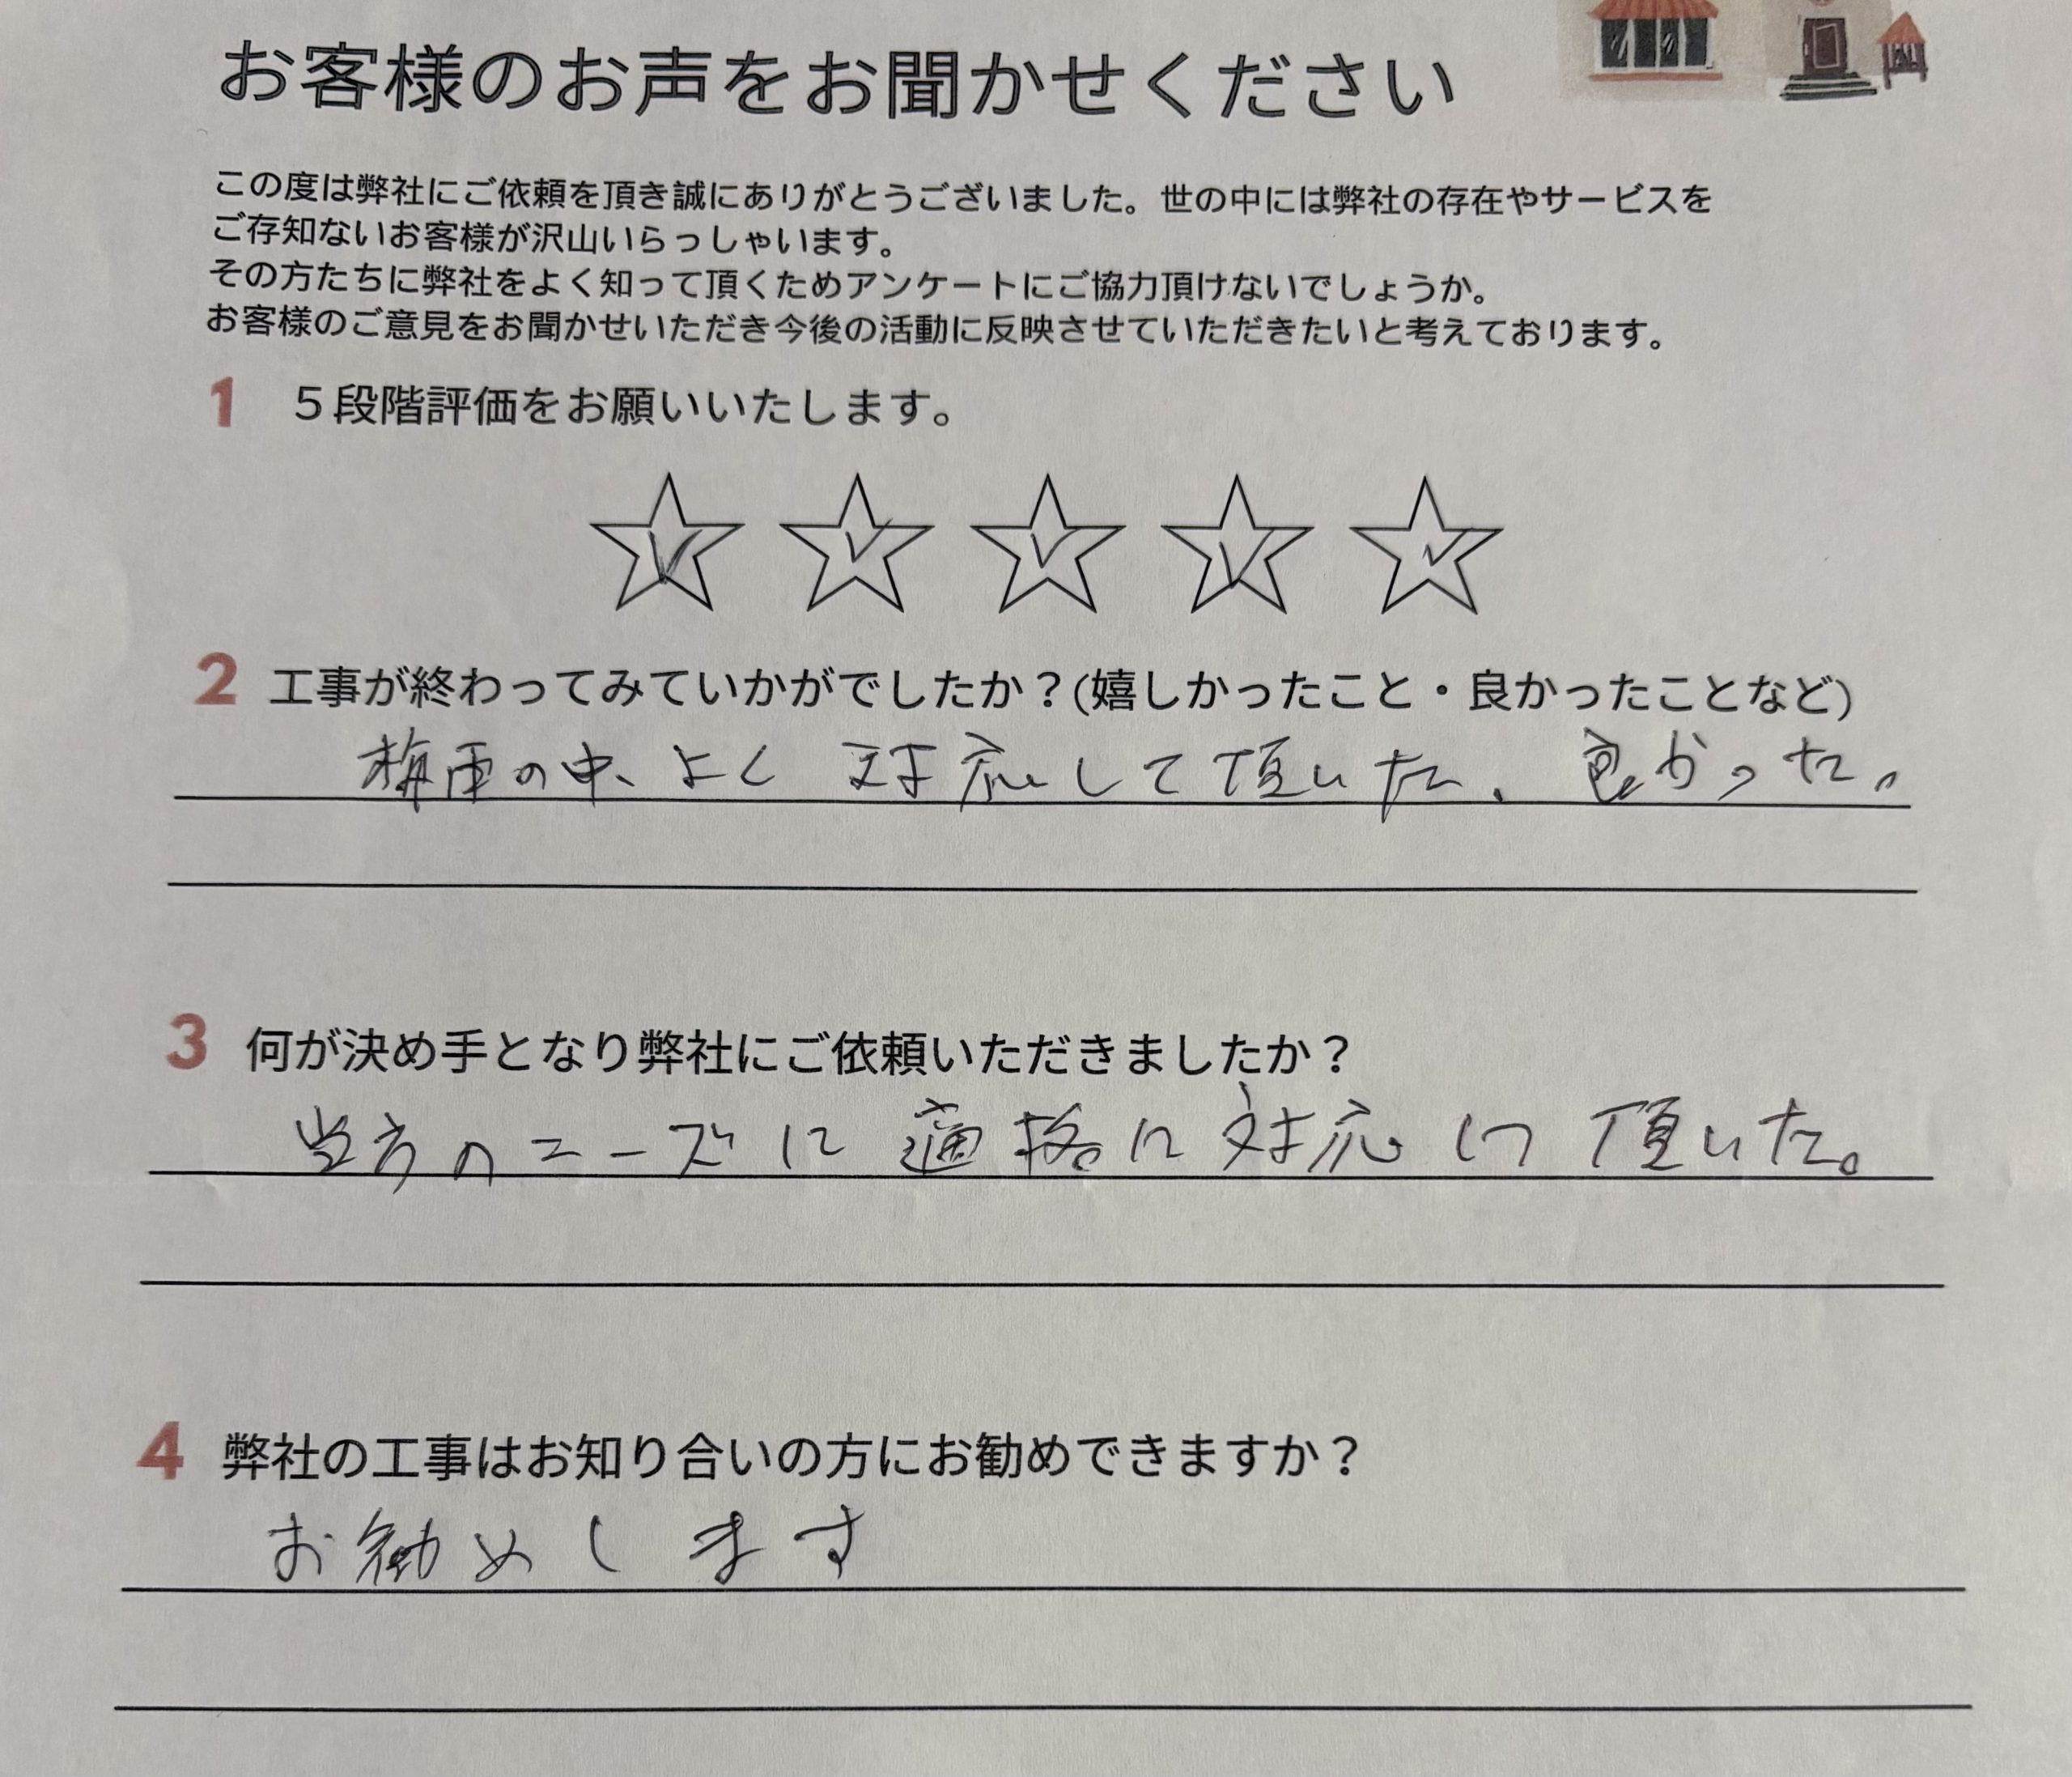 お客様のお声をお聞かせください
この度は弊社にご依頼を頂き誠にありがとうございました。世の中には弊社の存在やサービスを
ご存知ないお客様が沢山いらっしゃいます。
その方たちに弊社をよく知って頂くためアンケートにご協力頂けないでしょうか。
お客様のご意見をお聞かせいただき今後の活動に反映させていただきたいと考えております。
1 5段階評価をお願いいたします。
2 工事が終わってみていかがでしたか？(嬉しかったこと・良かったことなど)
梅雨の中、よく対応して頂いた、良かった。
3 何が決め手となり弊社にご依頼いただきましたか？
当方のニーズに適格に対応して頂いた。
4 弊社の工事はお知り合いの方にお勧めできますか？
お勧めします